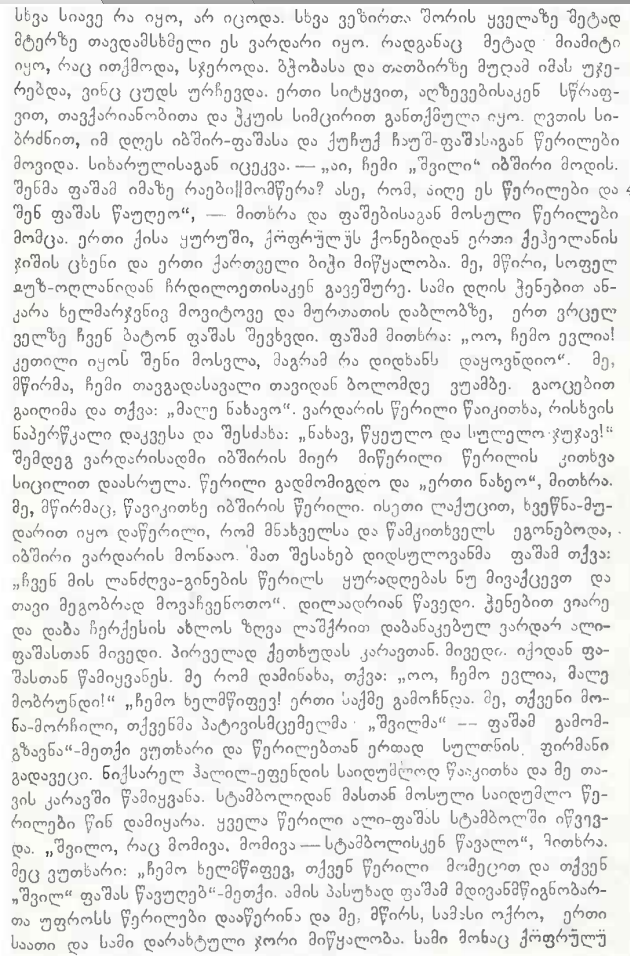 სხვა სიავე რა იყო, არ იცოდა. სხვა ვეზირთა შორის ყველაზე მეტად
მტერზე თავდამსხმელი ეს ვარდარი იყო. რადგანაც მეტად მიამიტი
იყო, რაც ითქმოდა, სჯეროდა. ბჭობასა და თათბირზე მუდამ იმას უჯე-
რებდა, ვინც ცუდს ურჩევდა. ერთი სიტყვით, აღზევებისაკენ სწრაფ-
ვით, თავქარიანობითა და ჭკუის სიმცირით განთქმული იყო. ღვთის სი-
ბრძნით, იმ დღეს იბშირ-ფაშასა და ქუჩუქ ჩაუშ-ფაშასაგან წერილები
მოვიდა. სიხარულისაგან იცეკვა. — „აი, ჩემი „შვილი“ იბშირი მოდის.
შენმა ფაშამ იმაზე რაები მომწერა? ასე, რომ, აიღე ეს წერილები და
შენ ფაშას წაუღეო“, — მითხრა და ფაშებისაგან მოსული წერილები
მომცა. ერთი ქისა ყურუში, ქოფრულუს ქონებიდან ერთი ქეჰეილანის
ჯიშის ცხენი და ერთი ქართველი ბიჭი მიწყალობა. მე, მწირი, სოფელ
ყუზ-ოღლანიდან ჩრდილოეთისაკენ გავეშურე. სამი დღის ჭენებით ან-
კარა ხელმარჯვნივ მოვიტოვე და მურთათის დაბლობზე, ერთ ვრცელ
ველზე ჩვენ ბატონ ფაშას შევხვდი. ფაშამ მითხრა: „ოო, ჩემო ევლია!
კეთილი იყოს შენი მოსვლა, მაგრამ რა დიდხანს დაყოვნდიო“. მე,
მწირმა, ჩემი თავგადასავალი თავიდან ბოლომდე ვუამბე. გაოცებით
გაიღიმა და თქვა: „მალე ნახავო“. ვარდარის წერილი წაიკითხა, რისხვის
ნაპერწკალი დაკვესა და შესძახა: „ნახავ, წყეულო და სულელო ჯუჯავ!“
შემდეგ ვარდარისადმი იბშირის მიერ მიწერილი წერილის კითხვა
სიცილით დაასრულა. წერილი გადმომიგდო და „ერთი ნახეო“, მითხრა.
მე, მწირმაც, წავიკითხე იბშირის წერილი. ისეთი ლაქუცით, ხვეწნა-მუ-
დარით იყო დაწერილი, რომ მნახველსა და წამკითხველს ეგონებოდა,
იბშირი ვარდარის მონააო. მათ შესახებ დიდსულოვანმა ფაშამ თქვა:
„ჩვენ მის ლანძღვა-გინების წერილს ყურადღებას ნუ მივაქცევთ და
თავი მეგობრად მოვაჩვენოთო“. დილაადრიან წავედი. ჭენებით ვიარე
და დაბა ჩერქესის ახლოს ზღვა ლაშქრით დაბანაკებულ ვარდარ ალი-
ფაშასთან მივედი. პირველად ქეთხუდას კარავთან მივედი. იქიდან ფა-
შასთან წამიყვანეს. მე რომ დამინახა, თქვა: „ოო, ჩემო ევლია, მალე
მობრუნდი!“ „ჩემო ხელმწიფევ! ერთი საქმე გამოჩნდა. მე, თქვენი მო-
ნა-მორჩილი, თქვენმა პატივისმცემელმა „შვილმა“ — ფაშამ გამომ-
გზავნა“-მეთქი ვუთხარი და წერილებთან ერთად სულთნის ფირმანი
გადავეცი. ნიქსარელ ჰალილ-ეფენდის საიდუმლოდ წაიკითხა და მე თა-
ვის კარავში წამიყვანა. სტამბოლიდან მასთან მოსული საიდუმლო წე-
რილები წინ დამიყარა. ყველა წერილი ალი-ფაშას სტამბოლში იწვევ-
და. „შვილო, რაც მომივა, მომივა — სტამბოლისკენ წავალო“, მითხრა.
მეც ვუთხარი: „ჩემო ხელმწიფევ, თქვენ წერილი მომეცით და თქვენ
„შვილ“ ფაშას წავუღებ“-მეთქი. ამის პასუხად ფაშამ მდივანმწიგნობარ-
თა უფროსს წერილები დააწერინა და მე, მწირს, სამასი ოქრო, ერთი
საათი და სამი დარახტული ჯორი მიწყალობა. სამი მონაც ქოფრულუ